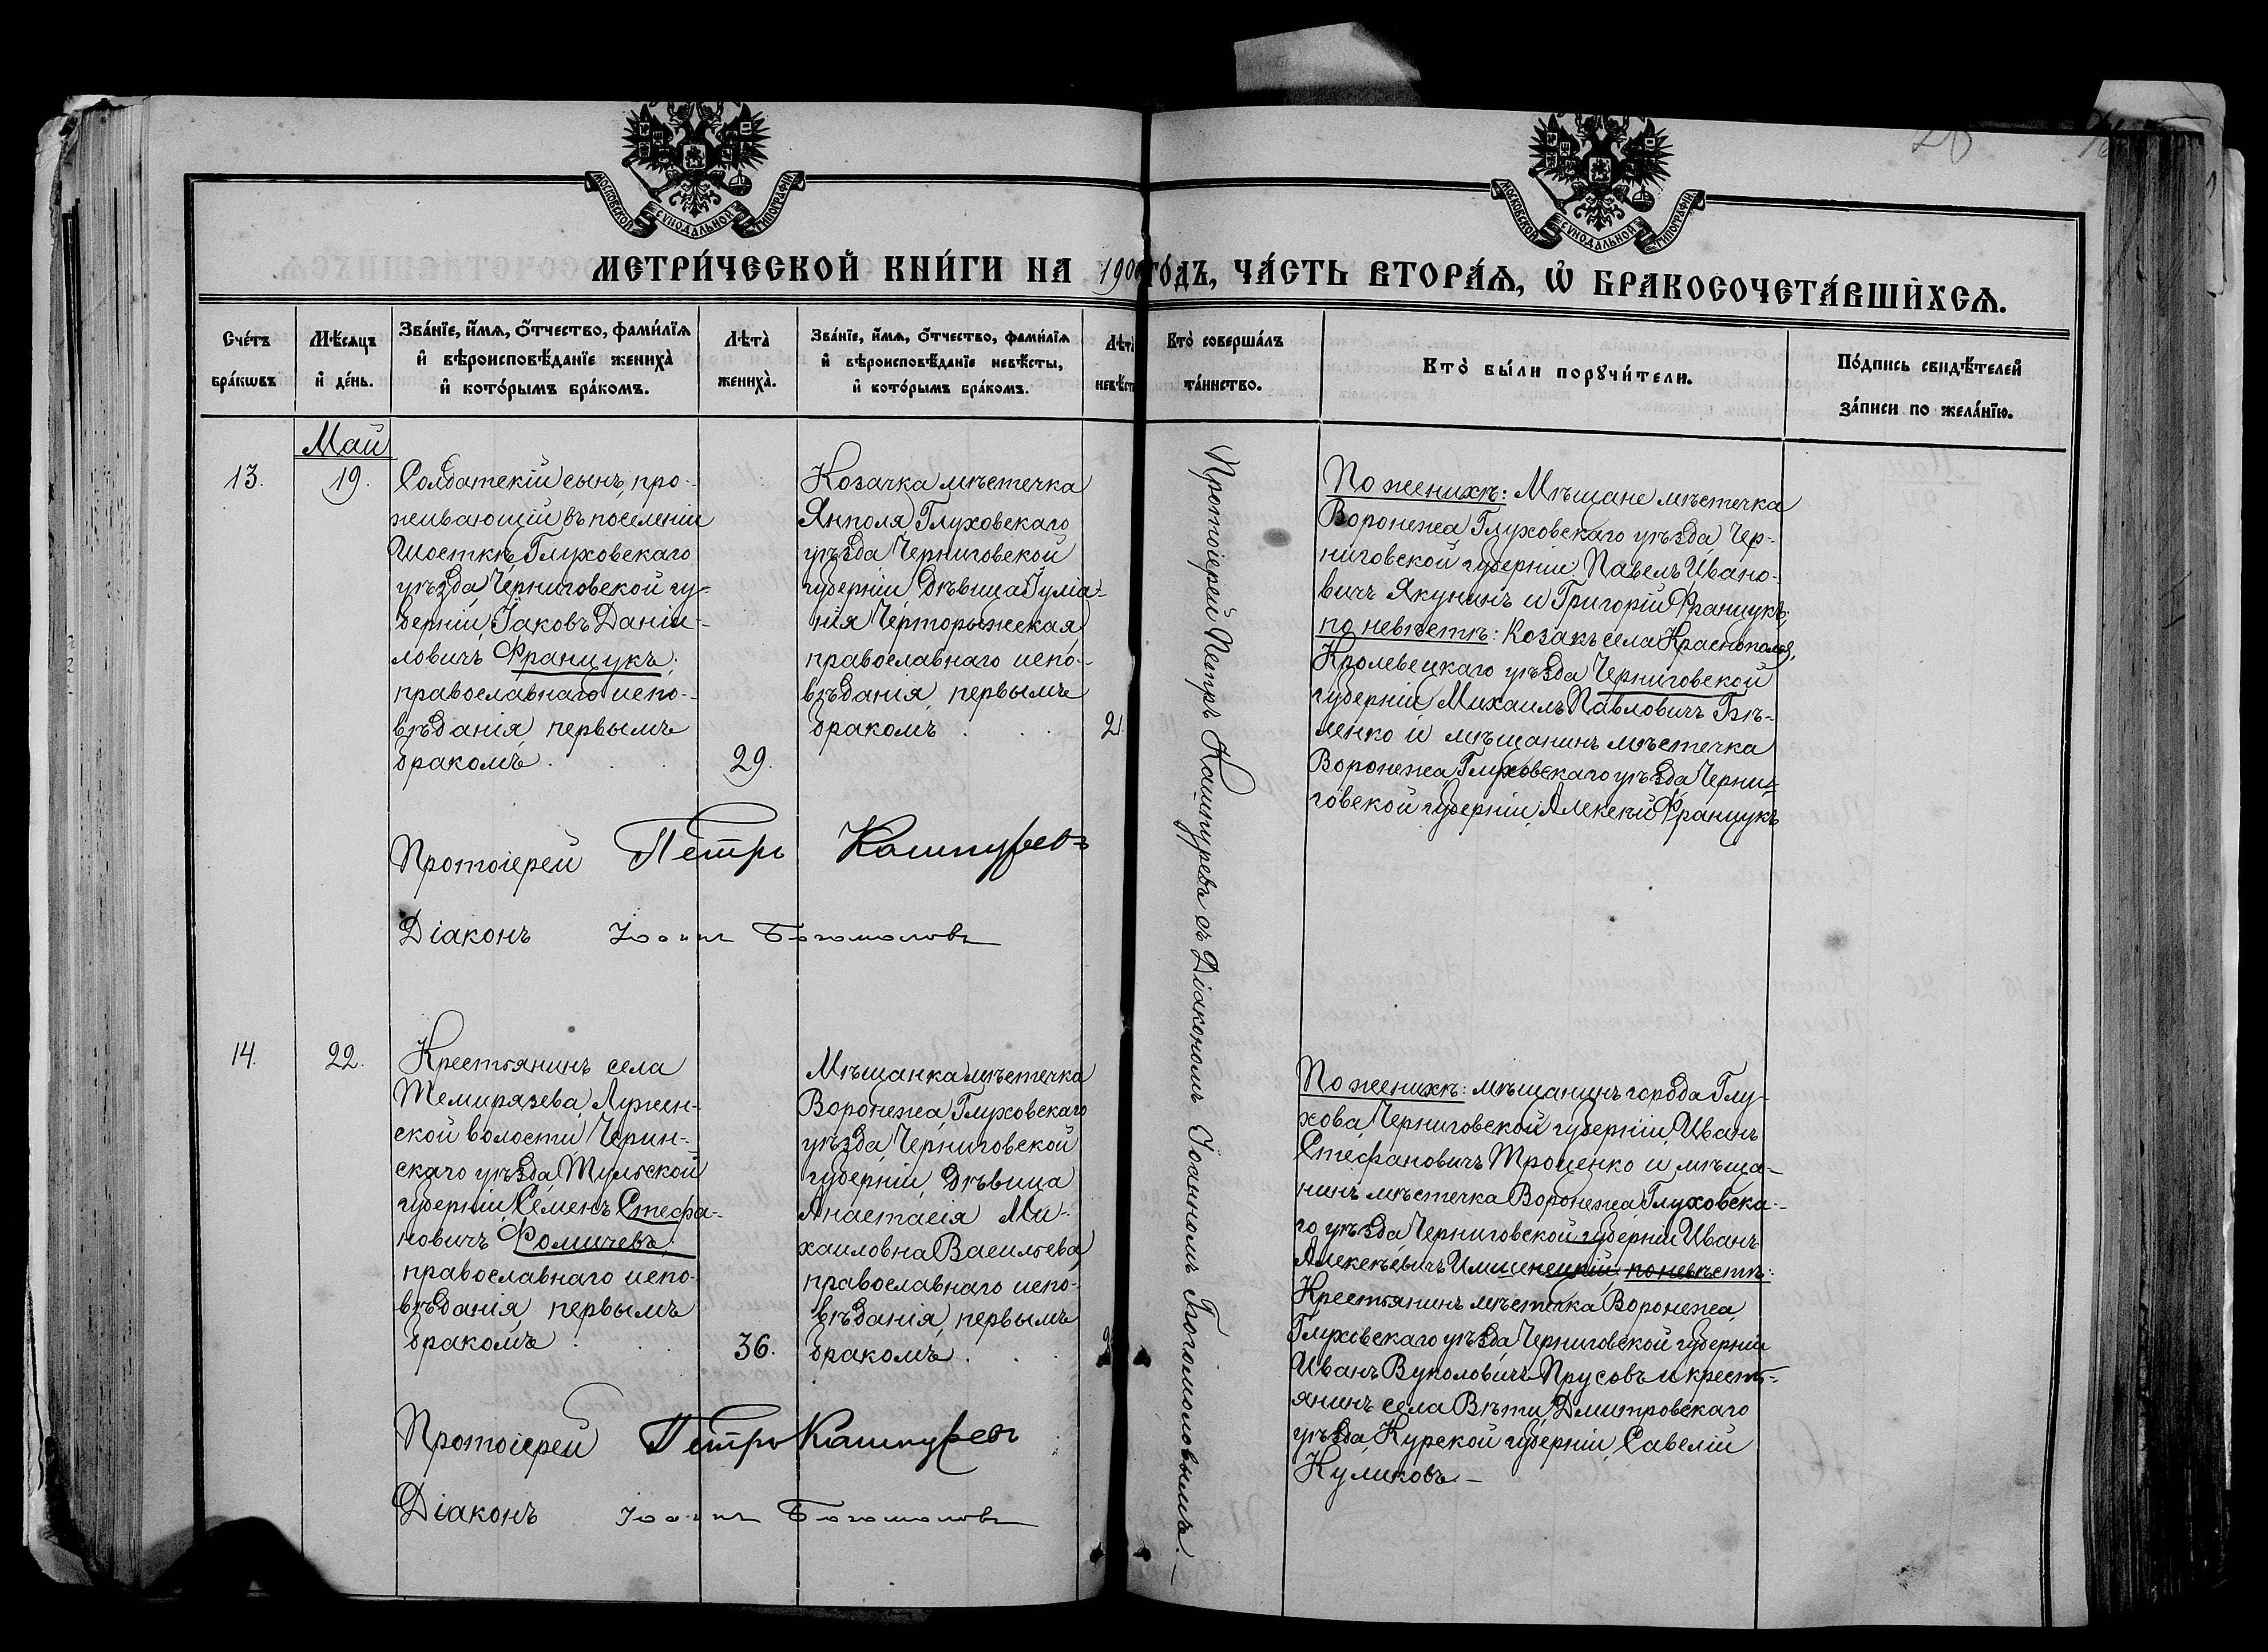 МОСКОВСКОЙ СѴНОДАЛЬНОЙ ТИПОГРАФІИ
МОСКОВСКОЙ СѴНОДАЛЬНОЙ ТИПОГРАФІИ
МЕТРИ́ЧЕСКОЙ КНИ́ГИ НА 190 ГО́ДЪ, ЧА́СТЬ ВТОРА́Ѧ, Ѡ҆ БРАКОСОЧЕТА́ВШИХСѦ.
Сче́тъ
бра́кѡвъ
Мѣ́сѧцъ
и҆ де́нь.
Зва́нїе, и҆́мѧ, ѻ҆́тчество, фами́лїѧ
и҆ вѣроисповѣ́данїе жениха̀
и҆ кото́рымъ бра́комъ.
Лѣта̀
жениха̀.
Зва́нїе, и҆́мѧ, ѻ҆́тчество, фами́лїѧ
и҆ вѣроисповѣ́данїе невѣ́сты,
и҆ кото́рымъ бра́комъ.
Лѣта
невѣст
Кто̀ соверша́лъ
та́инство.
Кто̀ бы́ли порꙋчи́тели.
По́дпись свидѣ́телей
за́писи по жела́нїю.
Май
13.
19.
Солдатскій сынъ, про-
живающій въ поселеніи
Шосткѣ, Глуховскаго
уѣзда, Черниговской гу-
берніи, Іаковъ Даніи-
ловичъ Францукъ,
православнаго испо-
вѣданія, первымъ
бракомъ . . .
29.
Козачка мѣстечка
Янполя Глуховскаго
уѣзда, Черниговской
губерніи, дѣвица Іуліа-
нія Черторыжская,
православнаго испо-
вѣданія, первымъ
бракомъ . . .
21.
Протоіерей Петръ Кашпуревъ
Діаконъ Іоаннъ Богомоловъ
Протоіерей Петръ Кашпуревъ съ Діакономъ Іоанномъ Богомоловымъ.—
По женихѣ: Мѣщане мѣстечка
Воронежа, Глуховскаго уѣзда Чер-
ниговской губерніи, Павелъ Ивано-
вичъ Якунинъ и Григорій Францукъ;
по невѣстѣ: козакъ села Краснополья,
Кролевецкаго уѣзда Черниговской
губерніи Михаилъ Павловичъ Бѣ-
ленко и мѣщанинъ мѣстечка
Воронежа, Глуховскаго уѣзда Черни-
говской губерніи, Алексій Францукъ
14.
22.
Крестьянинъ села
Темирязева, Лужен-
ской волости, Черин-
скаго уѣзда, Тульской
губерніи, Семенъ Стефа-
новичъ Фомичевъ,
православнаго испо-
вѣданія, первымъ
бракомъ . . .
36.
Мѣщанка мѣстечка
Воронежа, Глуховскаго
уѣзда, Черниговской
губерніи, дѣвица
Анастасія Ми-
хаиловна Васильева,
православнаго испо-
вѣданія, первымъ
бракомъ . . .
Протоіерей Петръ Кашпуревъ
Діаконъ Іоаннъ Богомоловъ
По женихѣ: мѣщанинъ города Глу-
хова, Черниговской губерніи, Иванъ
Стефановичъ Троценко и мѣща-
нинъ мѣстечка Воронежа, Глуховска-
го уѣзда Черниговской губерніи Иванъ
Алексѣевичъ по невѣстѣ:
Крестьянинъ мѣстечка Воронежа,
Глуховскаго уѣзда, Черниговской губерніи
Иванъ Вуколовичъ Прусовъ и кресть-
янинъ села Вѣти, Дмитровскаго
уѣзда, Курской губерніи, Савелій
Куликовъ.—